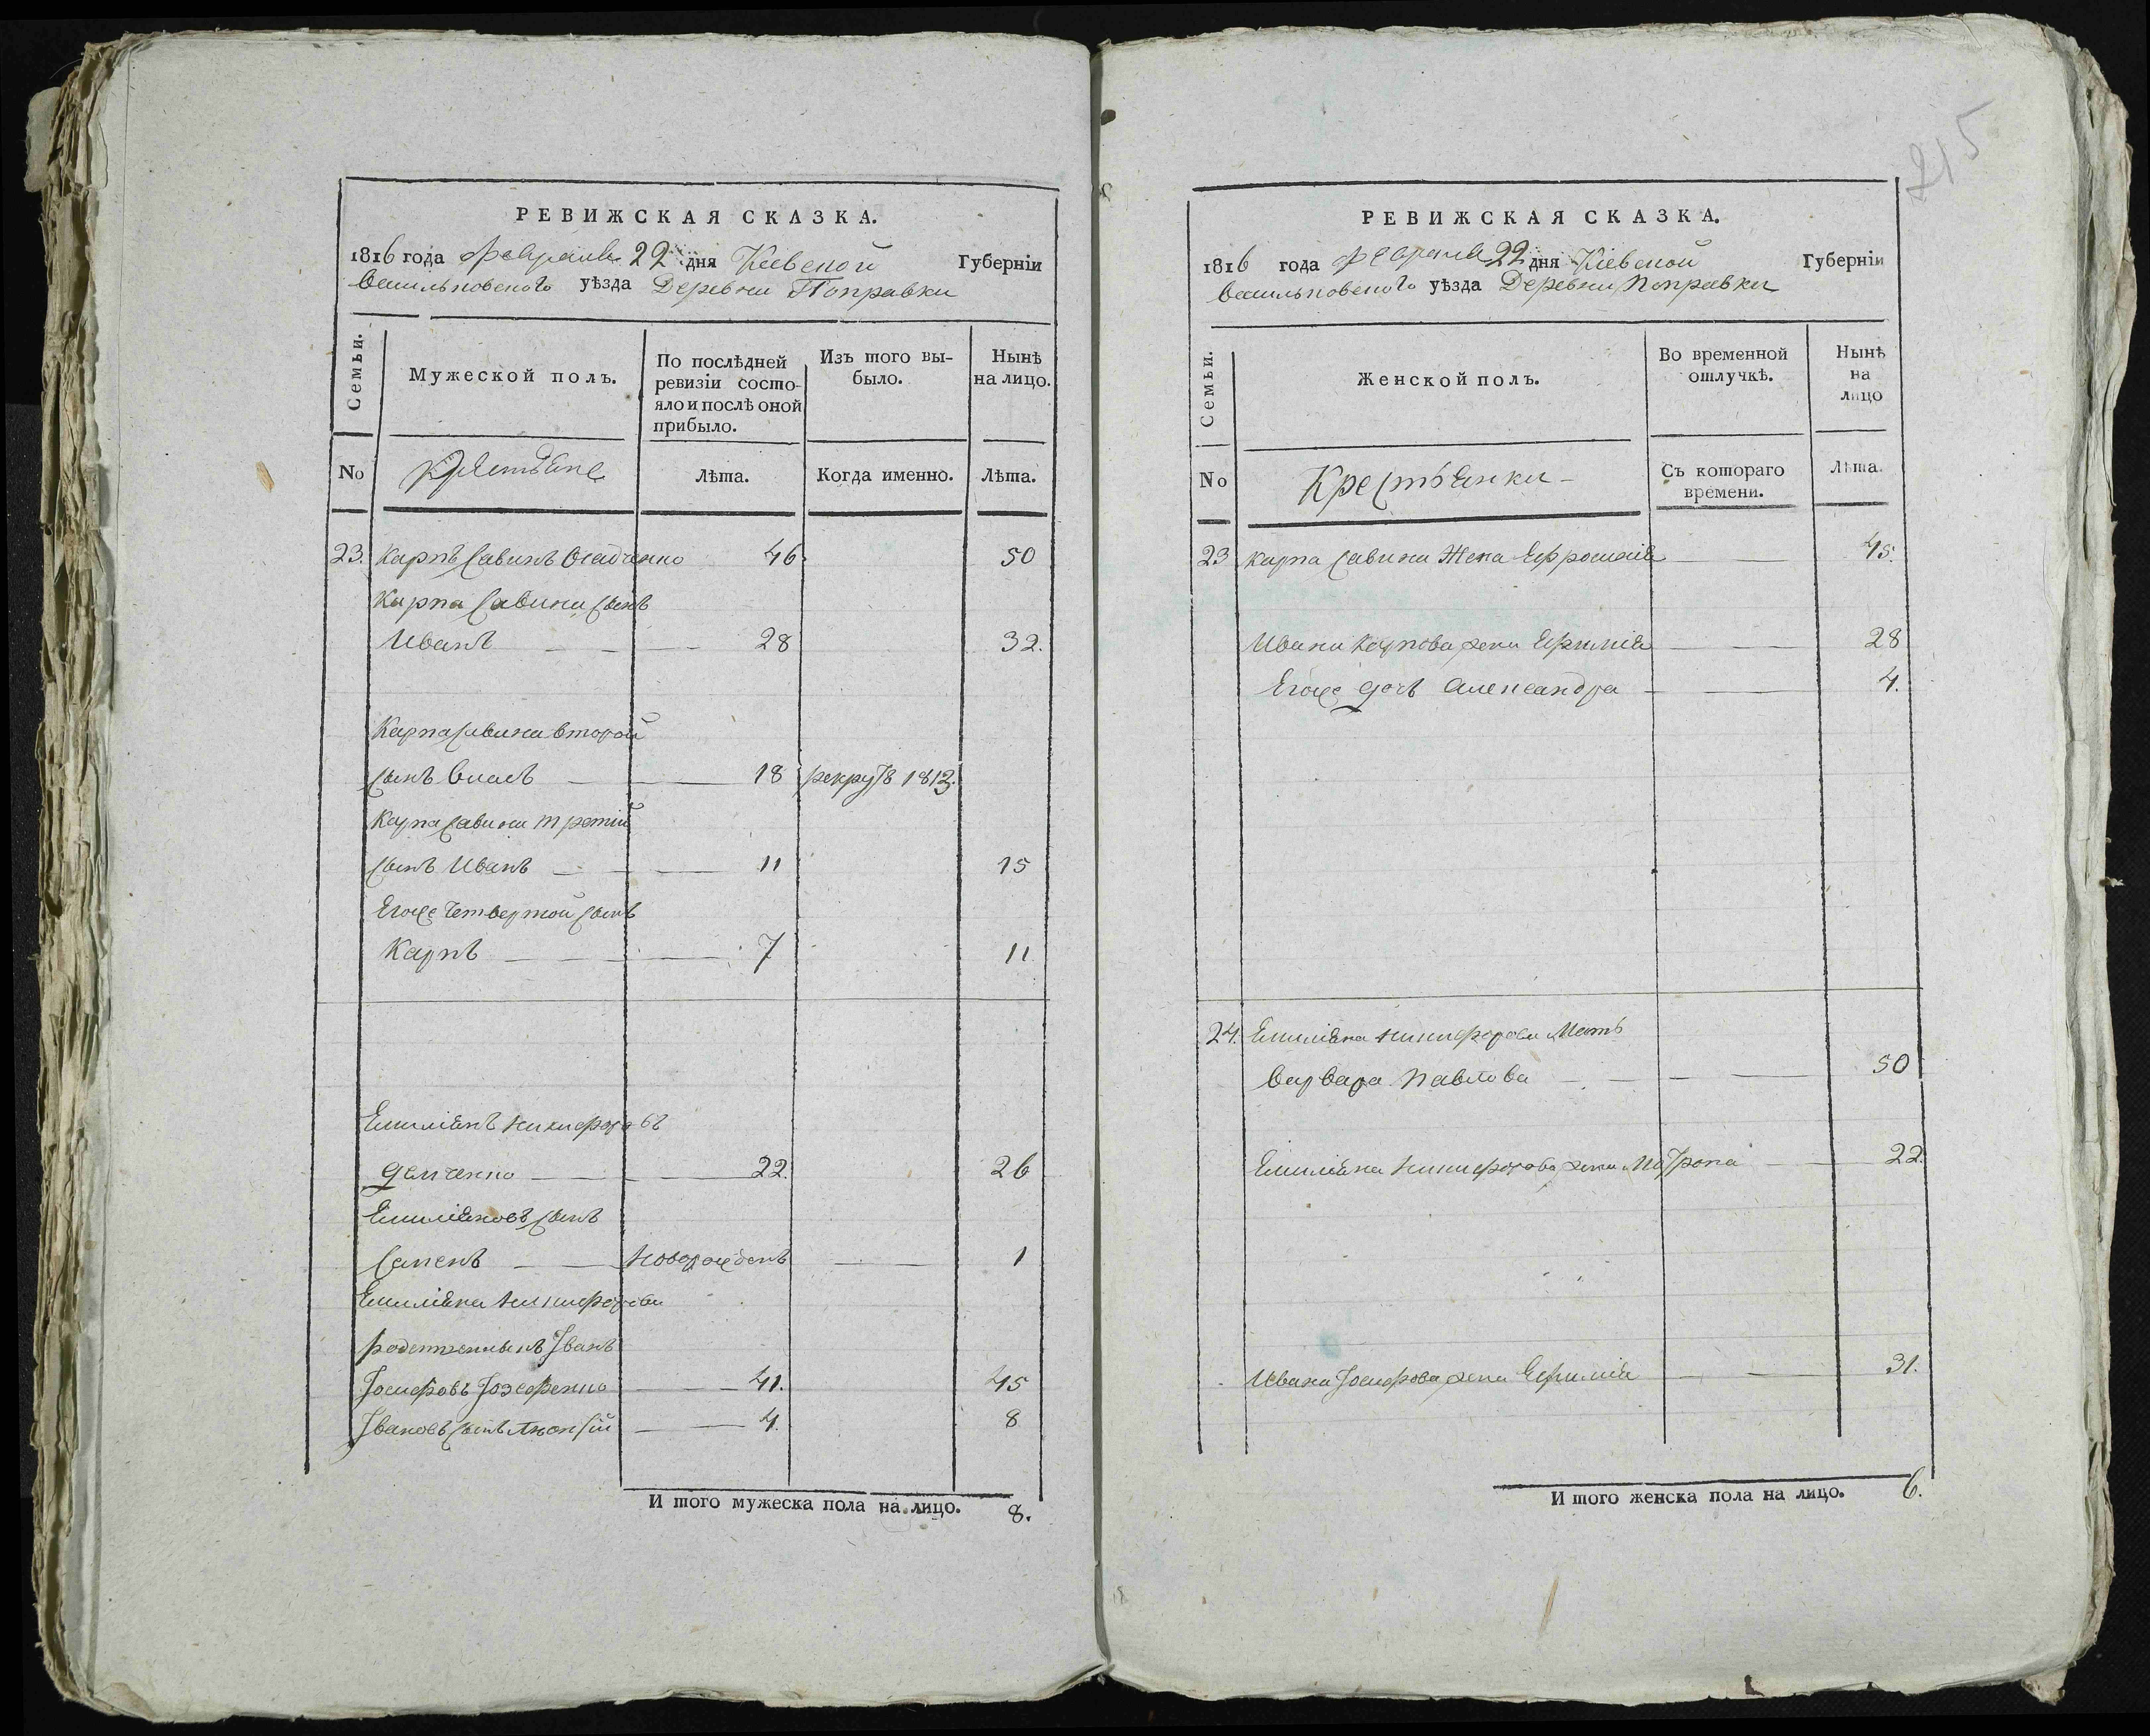 РЕВИЖСКАЯ СКАЗКА.
1816 года февраля 22 дня Кіевской Губерніи
Васильковского уѣзда Деревни Поправки
Семьи.
Мужеской полъ.
По послѣдней
ревизіи состо-
яло и послѣ оной
прибыло.
Изъ того вы-
было.
Нынѣ
на лицо.
No Крестьяне Лѣта. Когда именно. Лѣта.
23. Карпъ Савинъ Осадченко 46. 50
Карпа Савина сынъ
Иванъ 28 32.
Карпа Савина второй
сынъ Власъ 18 рекрутъ 1813.
Карпа Савина третій
сынъ Иванъ 11 15
Егоже четвертой сынъ
Карпъ 7 11
Емиліянъ Никифоровъ
Демченко 22. 26
Емиліяновъ сынъ
Семенъ новорожденъ 1
Емиліяна Никифорова
Іванъ
Іосифовъ Іозефенко 41. 45
Івановъ сынъ 4. 8
И того мужеска пола на лицо. 8.
215
РЕВИЖСКАЯ СКАЗКА.
1816 года февраля 22 дня Кіевской Губерніи
Васильковского уѣзда Деревни Поправки
Семьи.
Женской полъ.
Во временной
отлучкѣ.
Нынѣ
на
лицо
No Крестьянки Съ котораго
времени. Лѣта.
23 Карпа Савина жена Ефросинія 45.
Ивана Карпова жена Ефимія 28
Егоже дочь Александра 4.
24. Емиліяна Никифорова мать
Варвара Павлова 50
Емиліяна Никифорова жена Матрона 22.
Ивана Іосифова жена Ефимія 31.
И того женска пола на лицо. 6.